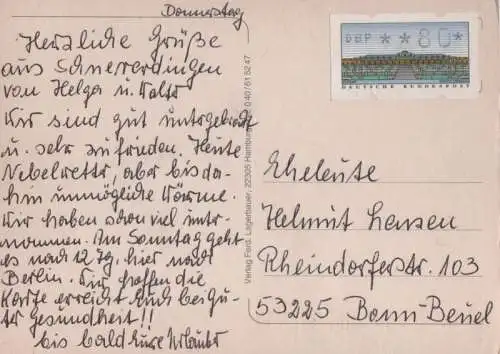 Donnerstag
Herzliche Grüße
aus Schneverdingen
von Helga u. Walter
Wir sind gut untergebracht
u. sehr zufrieden. Heute
Nebelwetter, aber bisda-
hin unmögliche Wärme.
Wir haben schon viel unter-
nommen. Am Sonntag geht
es nach 12 Tg. hier nach
Berlin. Wir hoffen die
Karte erreicht Euch bei gu-
ter Gesundheit!!
bis bald Eure Urlauber
Verlag Ferd. Lagerbauer, 22305 Hamburg 040/61 52 47
DBP * * 80 *
DEUTSCHE BUNDESPOST
Eheleute
Helmut Lensen
Rheindorferstr. 103
53225 Bonn-Beuel